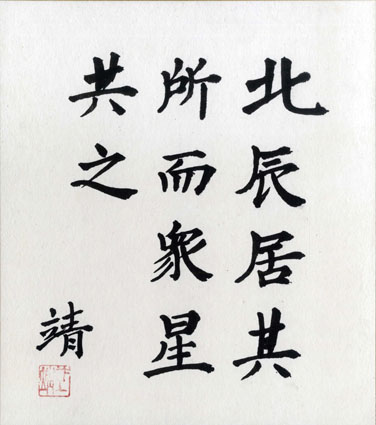 北辰居其
所而衆星
共之
靖